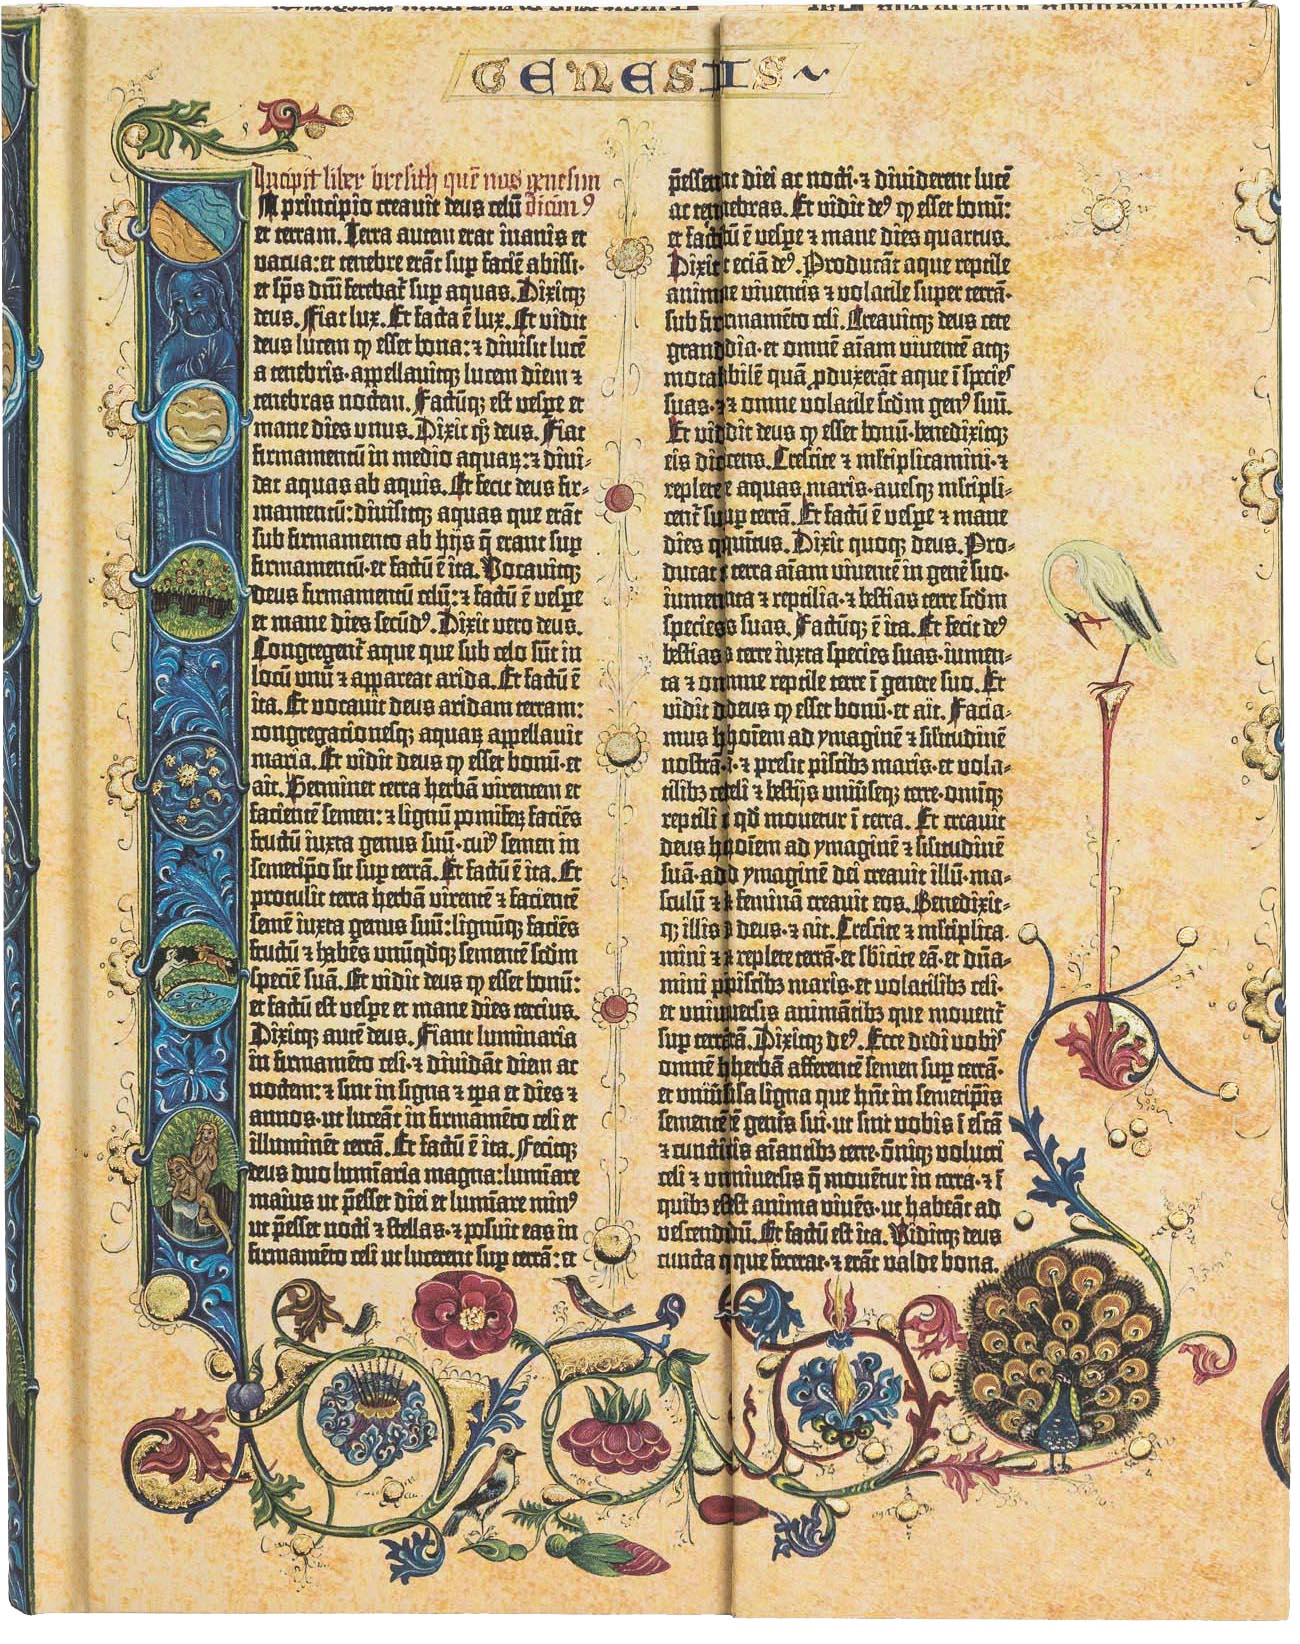 GENESIS
Incipit liber bresith quē nos genesim
In principio creavit deus celū dicim⁹
et terram. Terra autem erat inanis et
vacua: et tenebre erāt sup faciē abissi·
et sp̄s dn̄i ferebat᷑ sup aquas. Dixitqꝫ
deus. Fiat lux. Et facta ē lux. Et vidit
deus lucem ꝙ esset bona: ⁊ divisit lucē
a tenebris·appellavitqꝫ lucem diem ⁊
tenebras noctem. Factūqꝫ est vespe et
mane dies unus. Dixit qꝫ deus. Fiat
firmamentū in medio aquaꝝ: ⁊ divi-
dat aquas ab aquis. Et fecit deus fir-
mamentū: divisitqꝫ aquas que erāt
sub firmamento ab hijs q̄ erant sup
firmamentū· et factū ē ita. Vocavitqꝫ
deus firmamentū celū: ⁊ factū ē vespe
et mane dies secūd⁹. Dixit vero deus.
Congregent᷑ aque que sub celo sūt in
locū unū ⁊ appareat arida. Et factū ē
ita. Et vocavit deus aridam terram:
congregacionesqꝫ aquaꝝ appellavit
maria. Et vidit deus ꝙ esset bonū· et
ait. Germinet terra herbā virentem et
facientē semen: ⁊ lignū pomifeꝝ faciēs
fructū iuxta genus suū· cui⁹ semen in
semetip̄o sit sup terrā. Et factū ē ita. Et
protulit terra herbā virentē ⁊ facientē
semē iuxta genus suū: lignūqꝫ faciēs
fructū ⁊ habēs unūqdqꝫ sementē scdm
speciē suā. Et vidit deus ꝙ esset bonū:
et factū est vespe et mane dies tercius.
Dixitqꝫ autē deus. Fiant luminaria
in firmamēto celi· ⁊ dividāt diem ac
noctem: ⁊ sint in signa ⁊ tp̄a et dies ⁊
annos· ut luceāt in firmamēto celi et
illuminēt terrā. Et factū ē ita. Fecitqꝫ
deus duo lumīaria magna: lumīare
maius ut p̄esset diei et lumīare min⁹
ut p̄esset nocti ⁊ stellas· ⁊ posuit eas in
firmamēto celi ut lucerent sup terrā: et
p̄essent diei ac nocti· ⁊ dividerent lucē
ac tenebras. Et vidit de⁹ ꝙ esset bonū:
et factū ē vespe ⁊ mane dies quartus.
Dixit eciā de⁹. Producāt aque reptile
anime viventis ⁊ volatile super terrā·
sub firmamēto celi. Creavitqꝫ deus cete
grandia· et omnē aīam viventē atqꝫ
motabilē quā ꝓduxerāt aque ī species
suas· ⁊ omne volatile scdm gen⁹ suū.
Et vidit deus ꝙ esset bonū· benedixitqꝫ
eis dicens. Crescite ⁊ mltiplicamini· ⁊
replete aquas maris· avesqꝫ mltipli-
cent᷑ sup terrā. Et factū ē vespe ⁊ mane
dies quintus. Dixit quoqꝫ deus. Pro-
ducat terra aīam viventē in genē suo·
iumenta ⁊ reptilia· ⁊ bestias terre scdm
species suas. Factūqꝫ ē ita. Et fecit de⁹
bestias terre iuxta species suas· iumen-
ta ⁊ omne reptile terre ī genere suo. Et
vidit deus ꝙ esset bonū· et ait. Facia-
mus hoīem ad ymaginē ⁊ silitudinē
nostrā· ⁊ presit piscibꝫ maris· et vola-
tilibꝫ celi ⁊ bestijs univseqꝫ terre· omniqꝫ
reptili qd movetur ī terra. Et creavit
deus hoīem ad ymaginē ⁊ silitudinē
suā· ad ymaginē dei creavit illū· ma-
sculū ⁊ feminā creavit eos. Benedixit-
qꝫ illis deus· ⁊ ait. Crescite ⁊ mltiplica-
mini ⁊ replete terrā· et sbicite eā· et dn̄a-
mini piscibꝫ maris· et volatilibꝫ celi·
et universis animātibꝫ que movent᷑
sup terrā. Dixitqꝫ de⁹. Ecce dedi vobis
omnē herbā afferentē semen sup terrā·
et univsa ligna que hn̄t in semetip̄is
sementē genis sui· ut sint vobis ī escā
⁊ cunctis aīantibꝫ terre· om̄iqꝫ volucri
celi ⁊ universis q̄ movētur in terra· ⁊ ī
quibꝫ est anima vivēs· ut habeāt ad
vescendū. Et factū est ita. Viditqꝫ deus
cuncta que fecerat· ⁊ erāt valde bona.